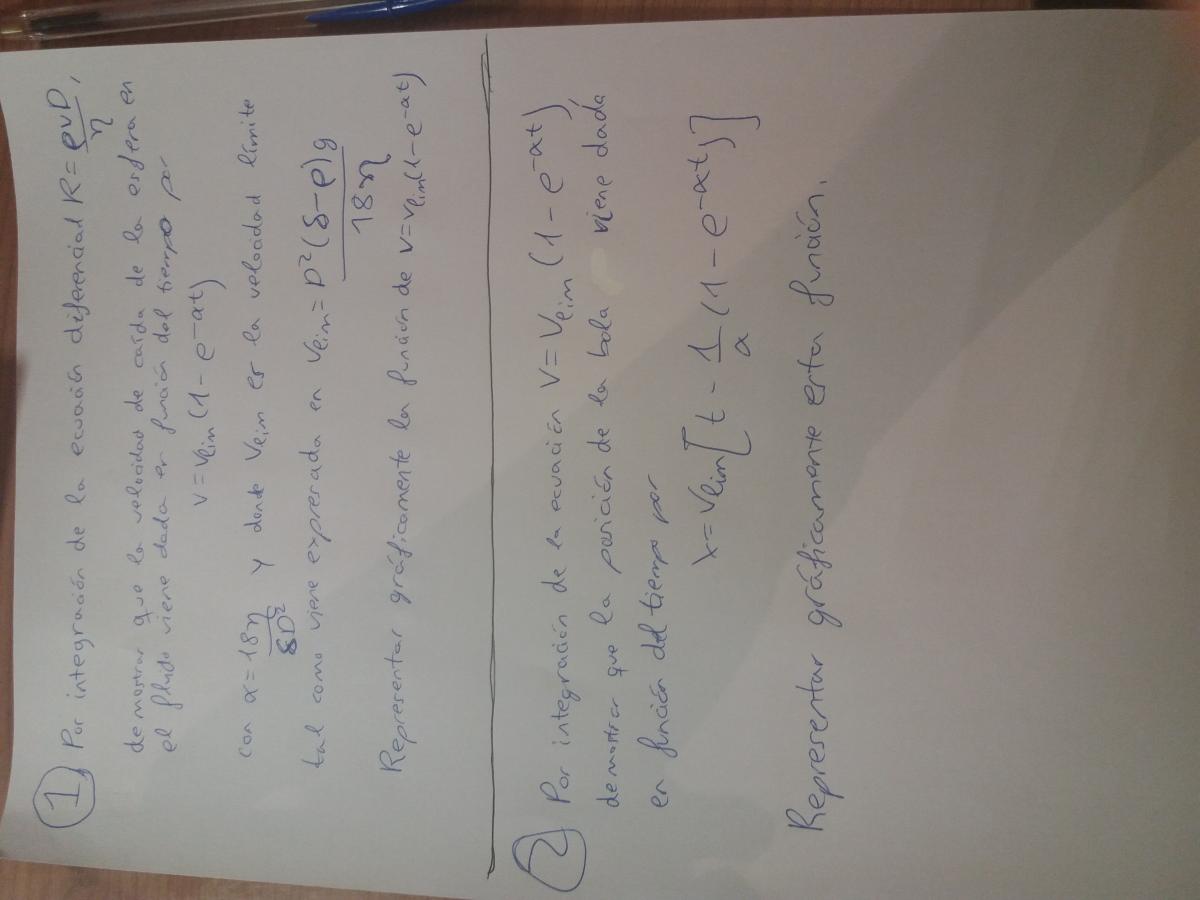 1 Por integración de la ecuación diferencial R = ρvD/η,
demostrar que la velocidad de caída de la esfera en
el fluido viene dada en función del tiempo por
v = vlim (1 - e^-αt)
con α = 18η/δD² y donde vlim es la velocidad límite
tal como viene expresada en vlim = D²(δ-ρ)g/18η
Representar gráficamente la función de v = vlim(1-e^-αt)
2 Por integración de la ecuación v = vlim (1 - e^-αt),
demostrar que la posición de la bola viene dada
en función del tiempo por
x = vlim [t - 1/α (1 - e^-αt)]
Representar gráficamente esta función.